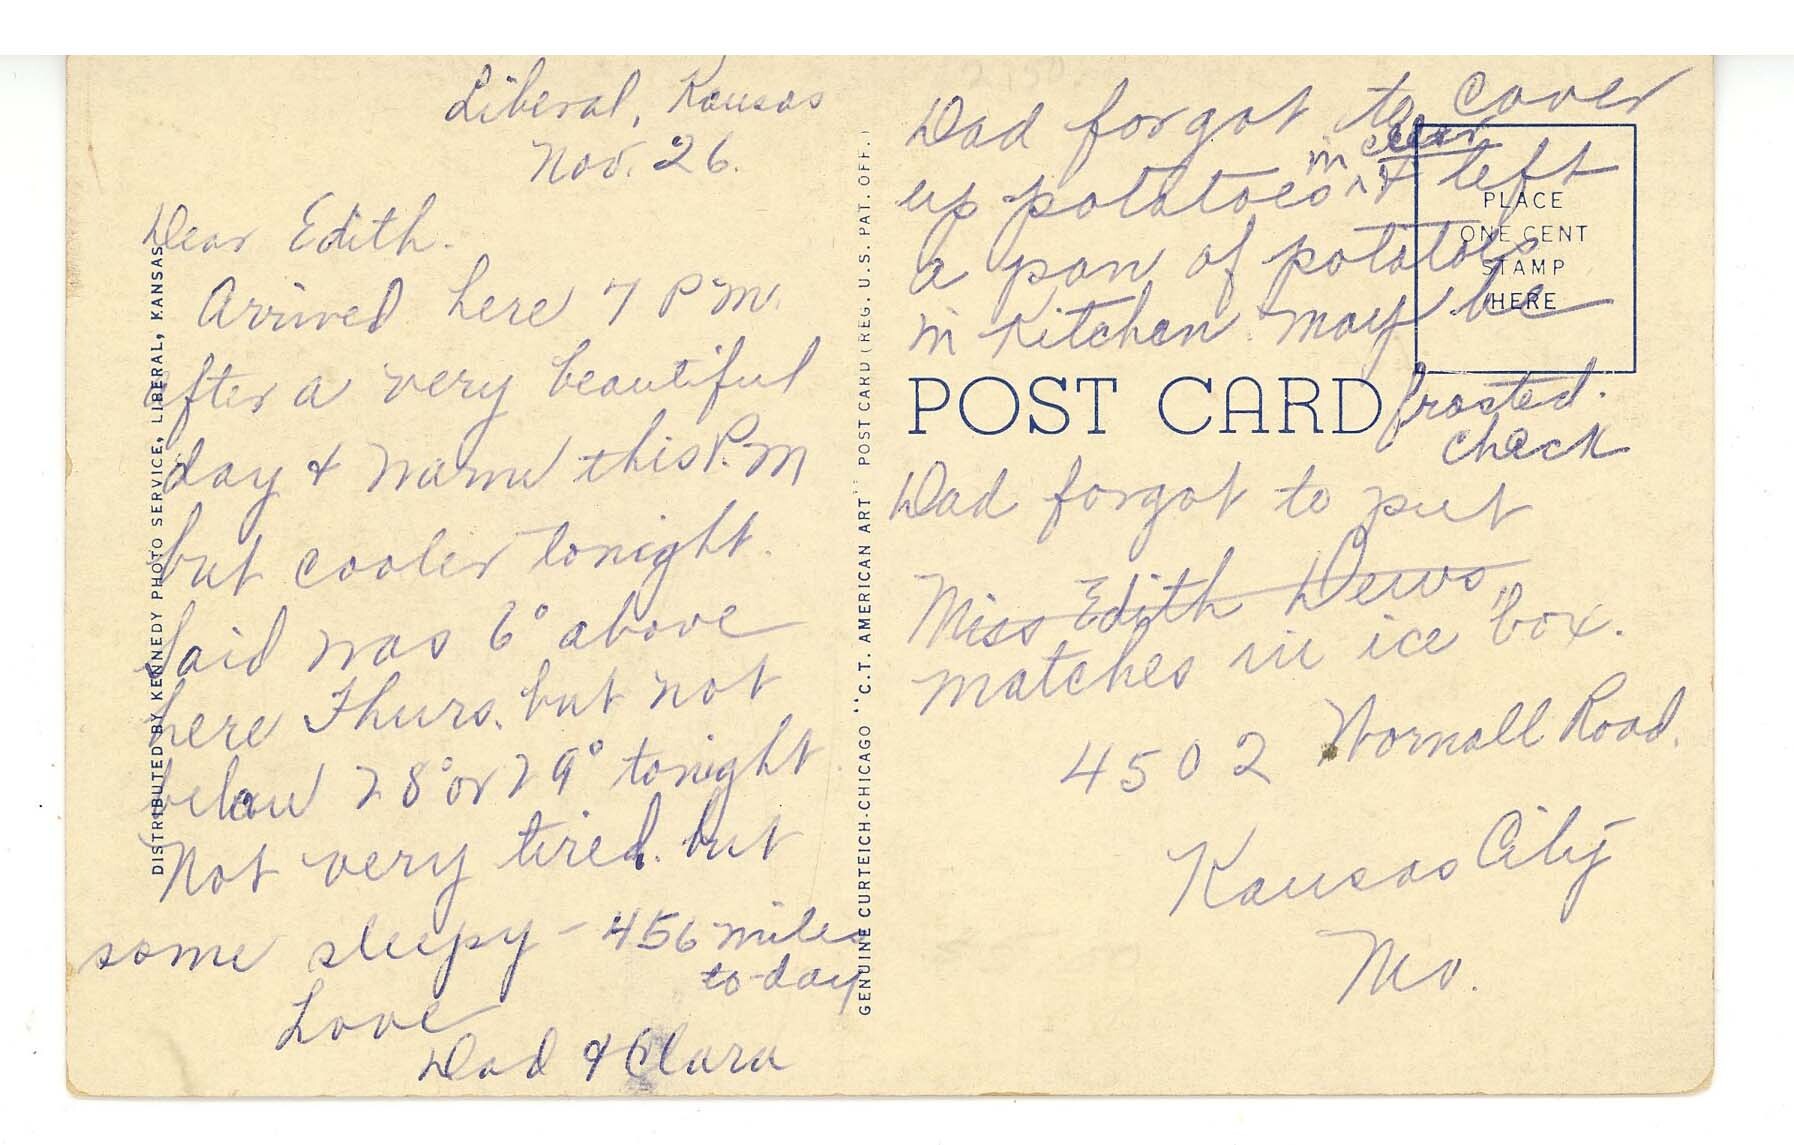 Liberal, Kansas
Nov. 26.
Dear Edith.
Arrived here 7 P.M.
after a very beautiful
day & warm this P.M
but cooler tonight.
Said was 6° above
here Thurs. but not
below 28° or 29° tonight
Not very tired. but
some sleepy - 456 miles
to-day
Love
Dad & Clara
DISTRIBUTED BY KENNEDY PHOTO SERVICE, LIBERAL, KANSAS
GENUINE CURTEICH-CHICAGO "C.T. AMERICAN ART" POST CARD (REG. U.S. PAT. OFF.)
Dad forgot to cover
up potatoes in cellar & left
a pan of potatoes
in kitchen. may be
frosted.
check
PLACE
ONE CENT
STAMP
HERE
POST CARD
Dad forgot to put
Miss Edith Dews
matches in ice box.
4502 Wornall Road.
Kansas City
Mo.